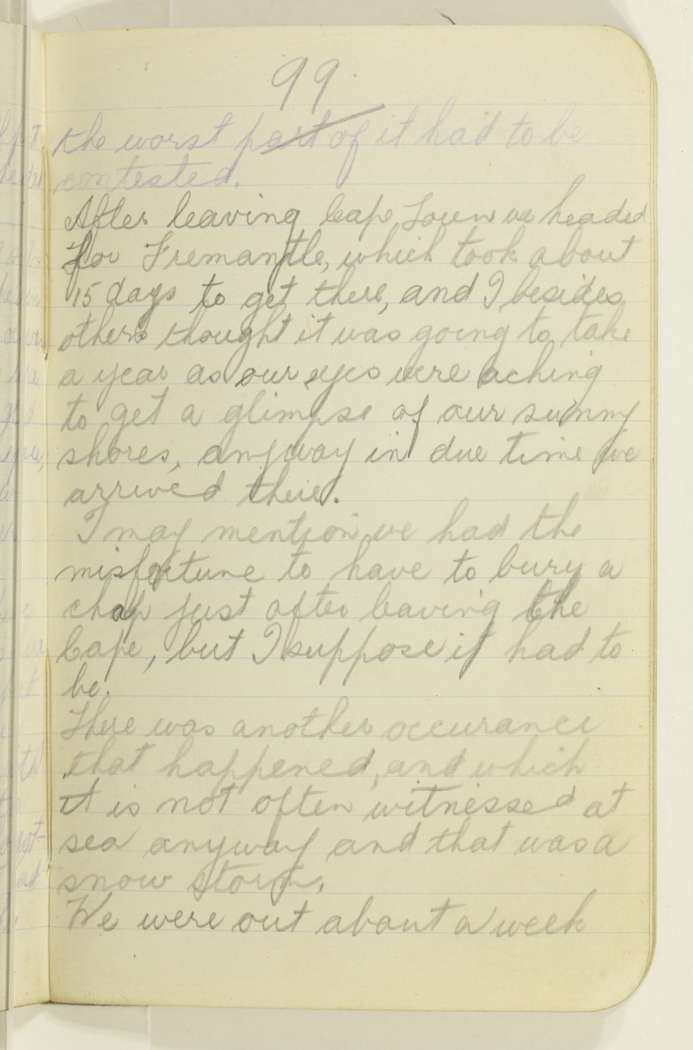 99.
the worst part of it had to be
contested.
After leaving Cape Town we headed
for Fremantle, which took about
15 days to get there, and I besides
others thought it was going to take
a year as our eyes were aching
to get a glimpse of our sunny
shores, anyway in due time we
arrived there.
I may mention we had the
misfortune to have to bury a
chap just after leaving the
Cape, but I suppose it had to
be.
There was another occurance
that happened, and which
it is not often witnessed at
sea anyway and that was a
snow storm.
We were out about a week